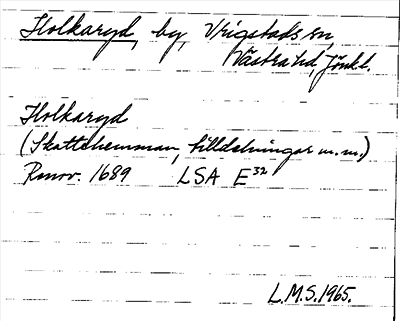 Holkaryd, by, Vrigstads sn,
Västra hd, Jönkl.
Holkaryd
(Skattehemman, tilldelningar m.m.)
Renov. 1689 LSA E32
L.M.S. 1965.